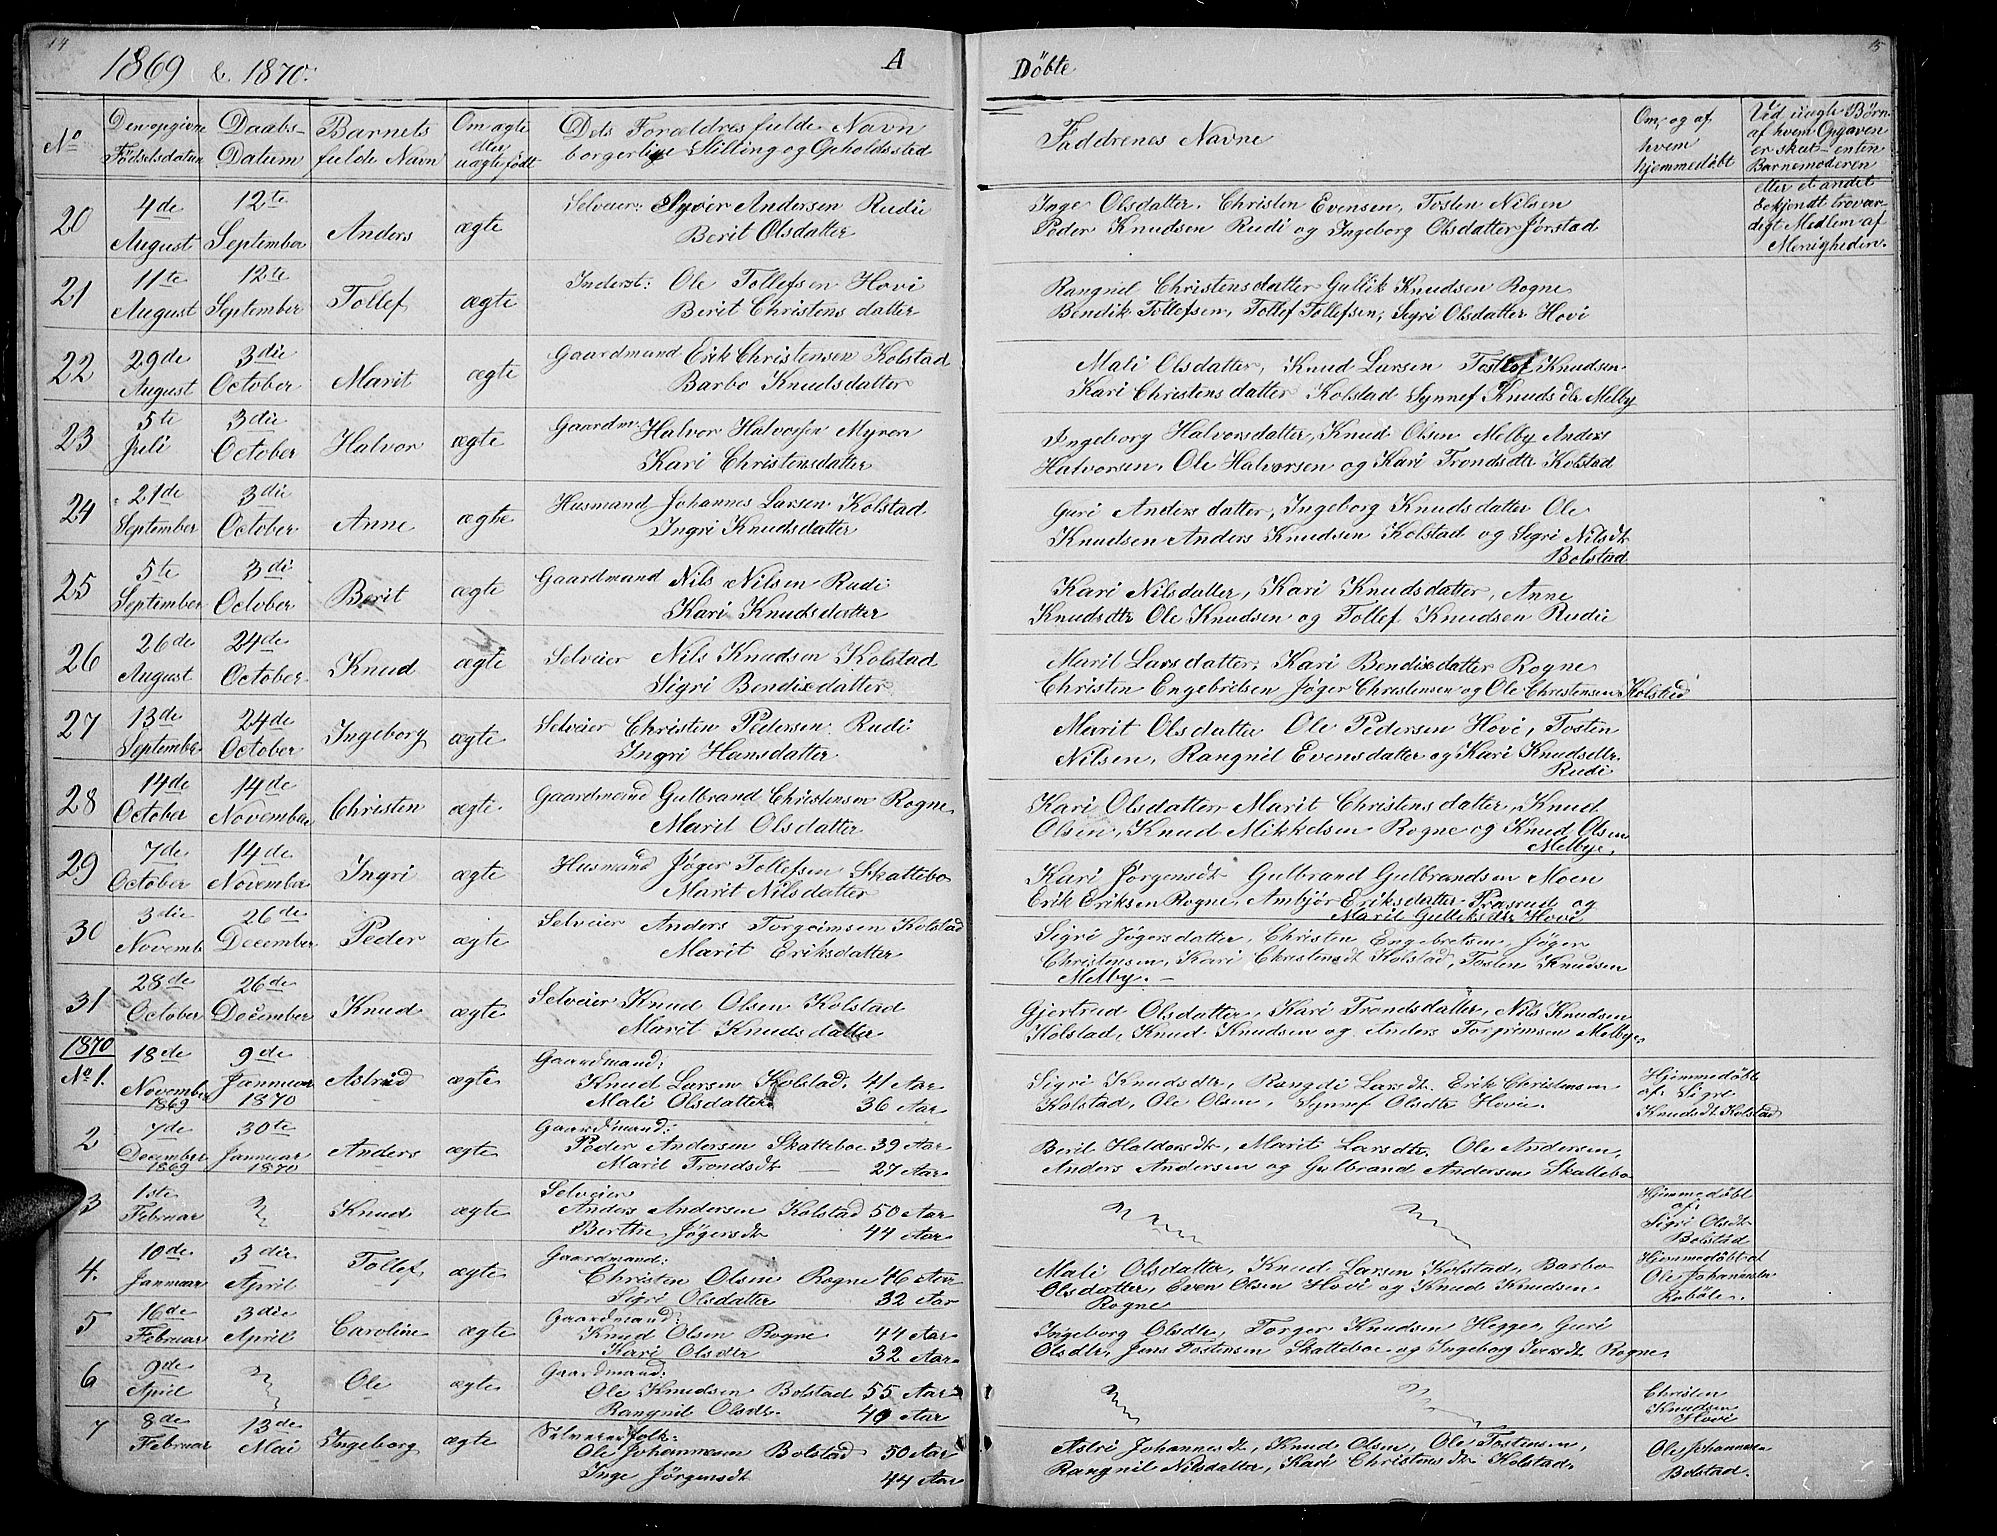 14
1869 & 1870.
A
Døbte
15
No
Den opgivne
Fødselsdatum
Daabs-
Datum
Barnets
fulde Navn
Om ægte
eller
uægte født
Dets Forældres fulde Navn
borgerlige Stilling og Opholdssted
Faddrenes Navne
Om, og af
hvem
hjemmedøbt
Ved uægte Børn
af hvem Opgaven
er skat- enten
Barnemoderen
eller et andet
bekjendt trovær-
digt Medlem af
Menigheden.
20
4de
August
12te
September
Anders
ægte
Selveier: Syver Andersen Rudi
Berit Olsdatter
Inge Olsdatter. Christen Evensen, Tosten Nilsen
Peder Knudsen Rudi og Ingeborg Olsdatter Jørstad
21
11te
August
12te
September
Tollef
ægte
Inderst: Ole Tollefsen Hovi
Berit Christensdatter
Rangnil Christensdatter Gullik Knudsen Rogne
Bendik Tollefsen, Tollef Tollefsen, Sigri Olsdatter Hovi
22
29de
August
3die
October
Marit
ægte
Gaardmand Erik Christensen Kolstad
Barbo Knudsdatter
Mali Olsdatter, Knud Larsen Knudsen
Kari Christensdatter Kolstad Synnef Knudsdtr Melby
23
5te
Juli
3die
October
Halvor
ægte
Gaardm. Halvor Halvorsen Myren
Kari Christensdatter
Ingeborg Halvorsdatter, Knud Olsen Melby Anders
Halvorsen, Ole Halvorsen og Kari Trondsdtr Kolstad
24
21de
September
3die
October
Anne
ægte
Husmand Johannes Larsen Kolstad
Ingri Knudsdatter
Guri Andersdatter, Ingeborg Knudsdatter Ole
Knudsen Anders Knudsen Kolstad og Sigri Nilsdt
Bolstad
25
5te
September
3die
October
Berit
ægte
Gaardmand Nils Nilsen Rudi
Kari Knudsdatter
Kari Nilsdatter, Kari Knudsdatter, Anne
Knudsdtr Ole Knudsen og Tollef Knudsen Rudi
26
26de
August
24de
October
Knud
ægte
Selveier Nils Knudsen Kolstad
Sigri Bendixdatter
Marit Larsdatter, Kari Bendixdatter Rogne
Christen Engebretsen Jøger Christensen og Ole Christensen Kolstad
27
13de
September
24de
October
Ingeborg
ægte
Selveier Christen Pedersen Rudi
Ingri Hansdatter
Marit Olsdatter Ole Pedersen Hovi, Tosten
Nilsen, Rangnil Evensdatter og Kari Knudsdtr
Rudi
28
14de
October
14de
November
Christen
ægte
Gaardmand Gulbrand Christensen Rogne
Marit Olsdatter
Kari Olsdatter Marit Christensdatter, Knud
Olsen, Knud Mikkelsen Rogne og Knud Olsen
Melbye.
29
7de
October
14de
November
Ingri
ægte
Husmand Jøger Tollefsen Skattebo
Marit Nilsdatter
Kari Jørgensdt Gulbrand Gulbrandsen Moen
Erik Eriksen Rogne, Ambjør Eriksdatter og
Marit Gulleksdtr Hovi
30
3die
Novemb
26de
December
Peder
ægte
Selveier Anders Torgeimsen Kolstad
Marit Eriksdatter
Sigri Jøgersdatter, Christen Engebretsen, Jøger
Christensen, Kari Christensdt Kolstad, Tosten Knudsen
Melby.
31
28de
October
26de
December
Knud
ægte
Selveier Knud Olsen Kolstad
Marit Knudsdatter
Gjertrud Olsdatter, Kari Trondsdatter, Nils Knudsen
Kolstad, Knud Knudsen og Anders Torgrimsen Melbye
1870
No 1.
18de
November
1869
9de
Januar
1870
Astrid
ægte
Gaardmand:
Knud Larsen Kolstad. 41 Aar
Mali Olsdatter 36 Aar
Sigri Knudsdtr, Rangdi Larsdt. Erik Christensen
Kolstad, Ole Olsen, Synnef Olsdtr Hovie.
Hjemmedøbt
af Sigre
Knudsdt Kolstad
2
7de
December
1869
30te
Januar
1870
Anders
ægte
Gaardmand:
Peder Andersen Skatteboe 39 Aar
Marit Trondsdt 27 Aar
Berit Haldorsdt, Marit Larsdtr. Ole Andersen,
Anders Andersen og Gulbrand Andersen Skattebo
3
1ste
Februar
Knud
ægte
Selveier
Anders Andersen Kolstad 50 Aar
Berthe Jøgersdt 44 Aar
Hjemmedøbt
af:
Sigri Olsdt
Bolstad
4.
10de
Januar
3die
April
Tollef
ægte
Gaardmand:
Christen Olsen Rogne 46 Aar
Sigri Olsdatter 32 Aar
Mali Olsdatter, Knud Larsen Kolstad, Barbo
Olsdatter, Even Olsen Hovi og Knud Knudsen
Rogne
Hjemmedøbt af
Ole Johannesen
Robøle.
5
16de
Februar
3die
April
Caroline
ægte
Gaardmand:
Knud Olsen Rogne 44 Aar
Kari Olsdtr 32 Aar
Ingeborg Olsdtr, Torger Knudsen Hegge, Guri
Olsdtr, Jens Tostensen Skatteboe og Ingeborg Iversdt Rogne.
6
9de
April
Ole
ægte
Gaardmand:
Ole Knudsen Bolstad 55 Aar
Rangnil Olsdtr. 40 Aar
Christen
Knudsen
Hovi
7
8de
Februar
13de
Mai
Ingeborg
ægte
Selveierfolk:
Ole Johannesen Bolstad 50 Aar
Inge Jörgensdt 44 Aar
Astri Johannesdt, Knud Olsen, Ole Tostensen,
Rangnil Nilsdatter, Kari Christensdt Kolstad.
Ole Johannesen
Bolstad.